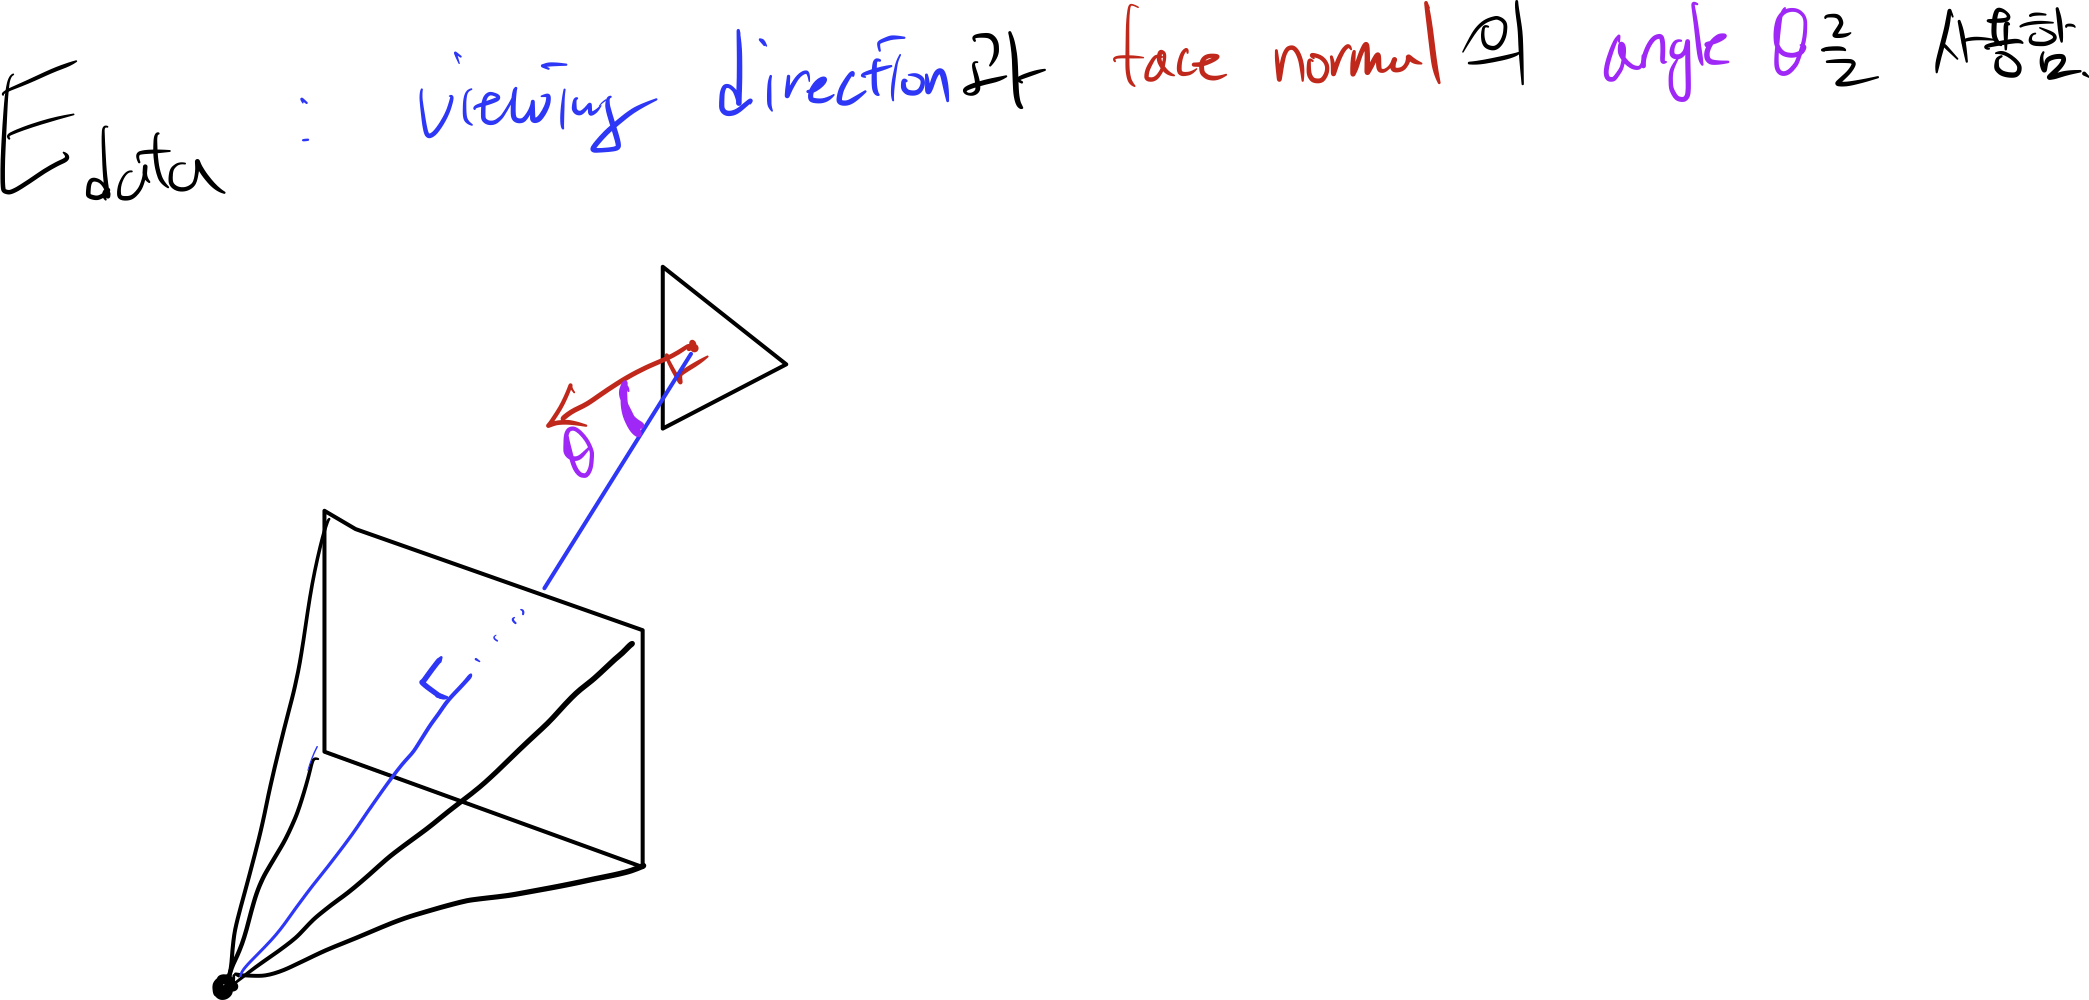 E data : viewing direction과 face normal의 angle θ를 사용함.
θ